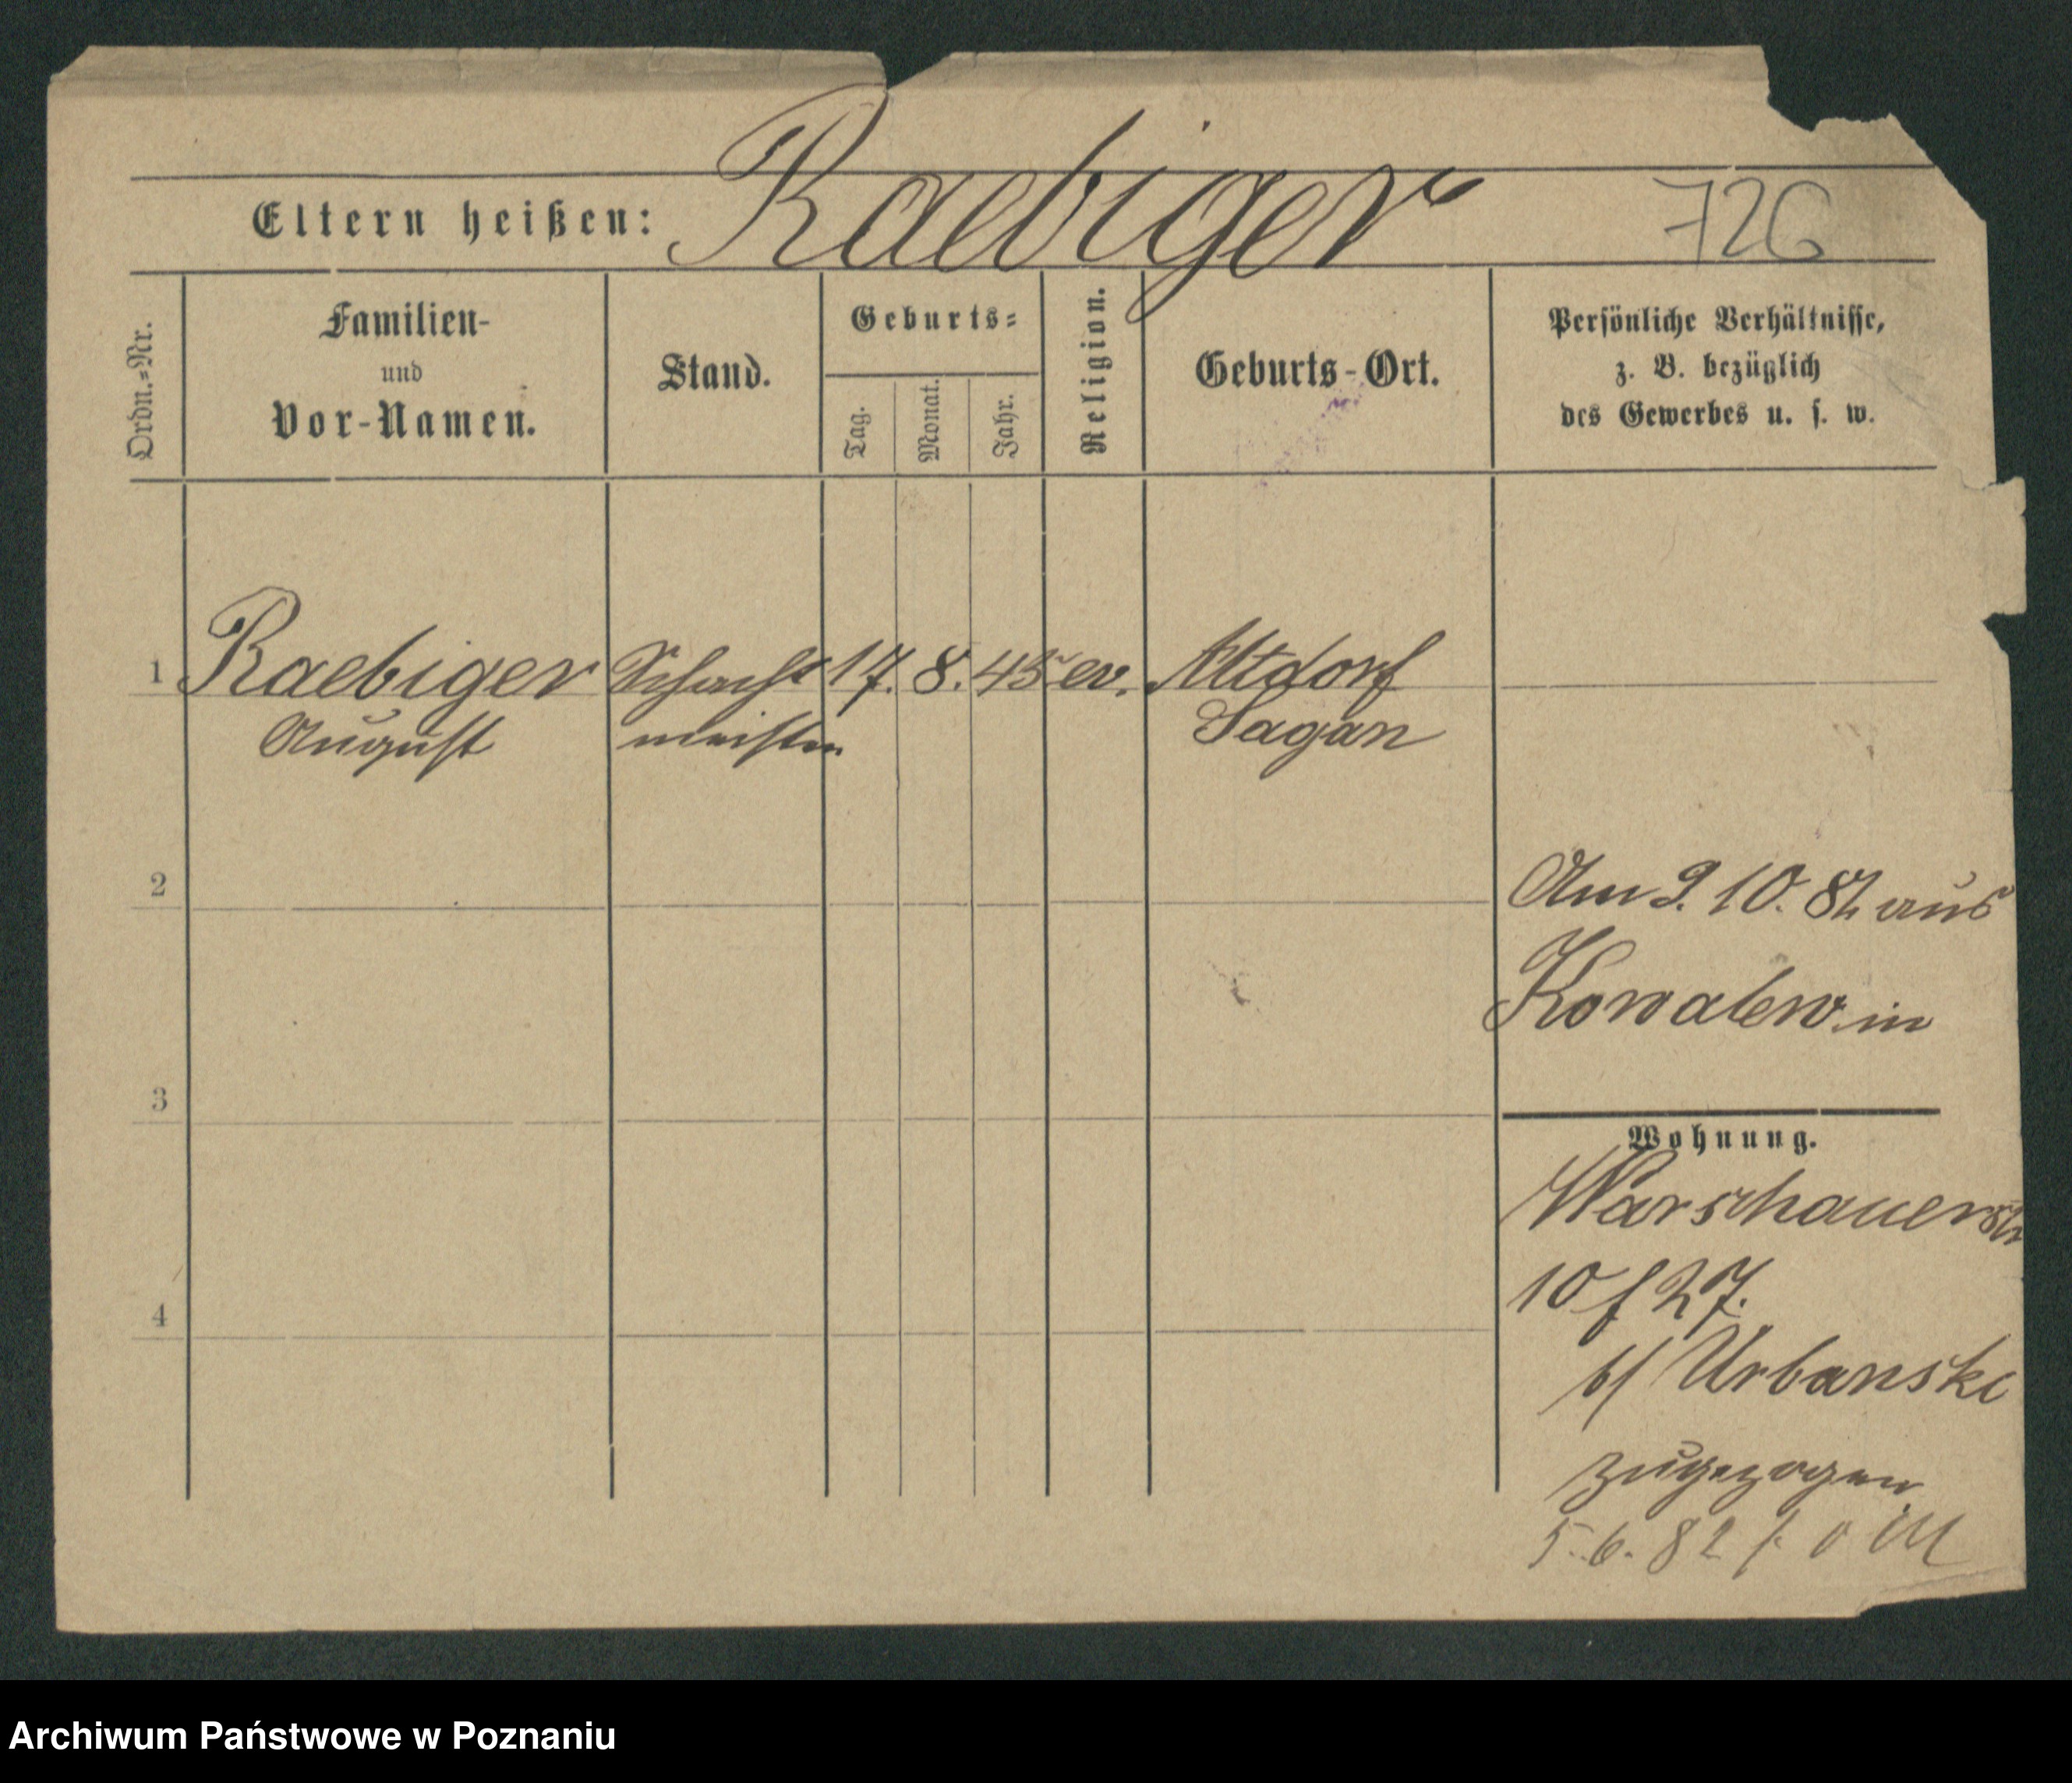 Eltern heißen: Raebiger 726
Ordn.=Nr.
Familien-
und
Vor-Namen.
Stand.
Geburts=
Tag.
Monat.
Jahr.
Religion.
Geburts-Ort.
Persönliche Verhältnisse,
z. B. bezüglich
des Gewerbes u. s. w.
1 Raebiger Schacht 17. 8. 45 ev. Altdorf
August meister Sagan
2
Am 2. 10. 82 aus
Kowalew in
3
Wohnung.
Warschauerstr
10 f 27.
4
b/ Urbanski
zugezogen
5. 6. 82
Archiwum Państwowe w Poznaniu